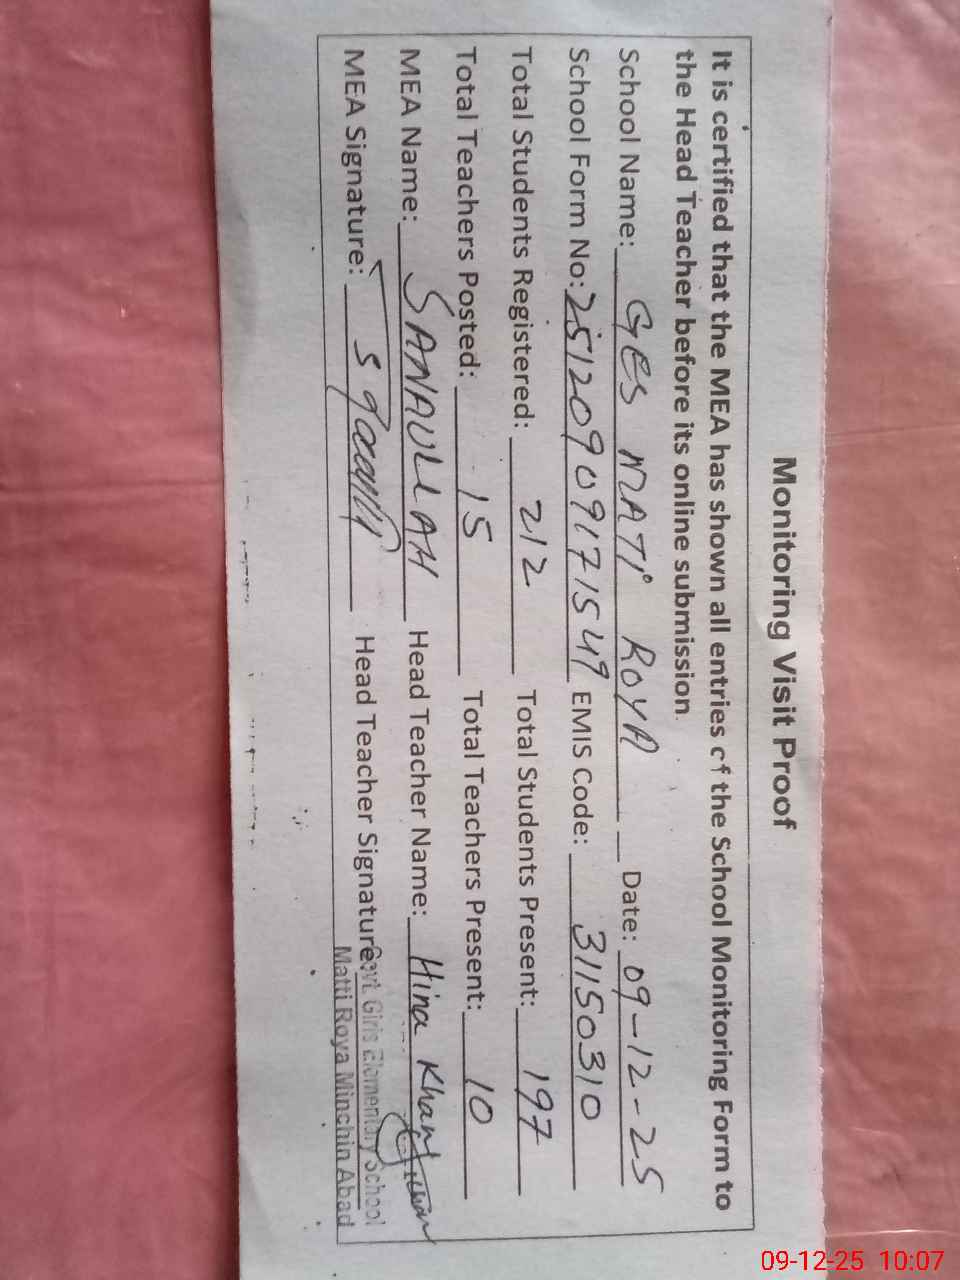 Monitoring Visit Proof
It is certified that the MEA has shown all entries of the School Monitoring Form to
the Head Teacher before its online submission.
School Name: GES MATI ROYA Date: 09-12-25
School Form No: 25120909171549 EMIS Code: 31150310
Total Students Registered: 212 Total Students Present: 197
Total Teachers Posted: 15 Total Teachers Present: 10
MEA Name: SANAULLAH Head Teacher Name: Hina Khan
MEA Signature: Head Teacher Signature:
Govt. Girls Elementary School
Matti Roya Minchin Abad
09-12-25 10:07